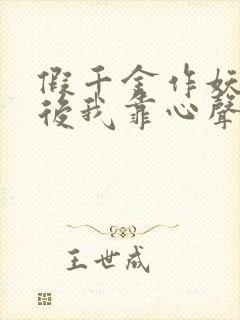 假千金作妖
後我靠心聲
王世成